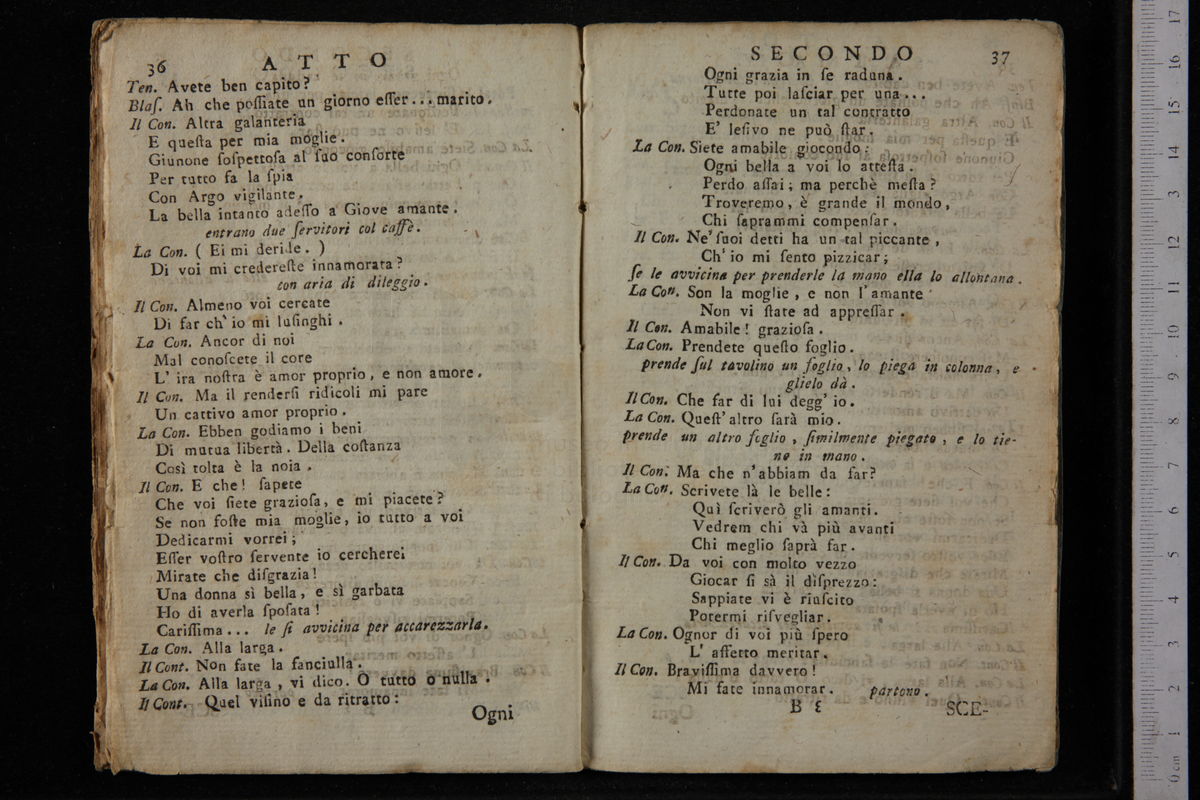 36 ATTO
Ten. Avete ben capito?
Blaſ. Ah che poſſiate un giorno eſſer... marito.
Il Con. Altra galanteria
E queſta per mia moglie.
Giunone ſoſpettoſa al ſuo conſorte
Per tutto fa la ſpia
Con Argo vigilante.
La bella intanto adeſſo a Giove amante.
entrano due ſervitori col caffè.
La Con. ( Ei mi deride. )
Di voi mi credereſte innamorata?
con aria di dileggio.
Il Con. Almeno voi cercate
Di far ch' io mi luſinghi.
La Con. Ancor di noi
Mal conoſcete il core
L' ira noſtra è amor proprio, e non amore.
Il Con. Ma il renderſi ridicoli mi pare
Un cattivo amor proprio.
La Con. Ebben godiamo i beni
Di mutua libertà. Della coſtanza
Così tolta è la noia.
Il Con. E che! ſapete
Che voi ſiete grazioſa, e mi piacete?
Se non foſte mia moglie, io tutto a voi
Dedicarmi vorrei;
Eſſer voſtro ſervente io cercherei
Mirate che diſgrazia!
Una donna sì bella, e sì garbata
Ho di averla ſpoſata!
Cariſſima... le ſi avvicina per accarezzarla.
La Con. Alla larga.
Il Cont. Non fate la fanciulla.
La Con. Alla larga, vi dico. O tutto o nulla.
Il Cont. Quel viſino e da ritratto:
Ogni
SECONDO 37
Ogni grazia in ſe raduna.
Tutte poi laſciar per una...
Perdonate un tal contratto
E' leſivo ne può ſtar.
La Con. Siete amabile giocondo;
Ogni bella a voi lo atteſta.
Perdo aſſai; ma perchè meſta?
Troveremo, è grande il mondo,
Chi ſaprammi compenſar.
Il Con. Ne' ſuoi detti ha un tal piccante,
Ch' io mi ſento pizzicar;
ſe le avvicina per prenderle la mano ella lo allontana.
La Con. Son la moglie, e non l' amante
Non vi ſtate ad appreſſar.
Il Con. Amabile! grazioſa.
La Con. Prendete queſto foglio.
prende ſul tavolino un foglio, lo piega in colonna, e
glielo dà.
Il Con. Che far di lui degg' io.
La Con. Queſt' altro ſarà mio.
prende un altro foglio, ſimilmente piegato, e lo tie-
ne in mano.
Il Con. Ma che n' abbiam da far?
La Con. Scrivete là le belle:
Quì ſcriverò gli amanti.
Vedrem chi và più avanti
Chi meglio ſaprà far.
Il Con. Da voi con molto vezzo
Giocar ſi sà il diſprezzo:
Sappiate vi è riuſcito
Potermi riſvegliar.
La Con. Ognor di voi più ſpero
L' affetto meritar.
Il Con. Braviſſima davvero!
Mi fate innamorar. partono.
B SCE-